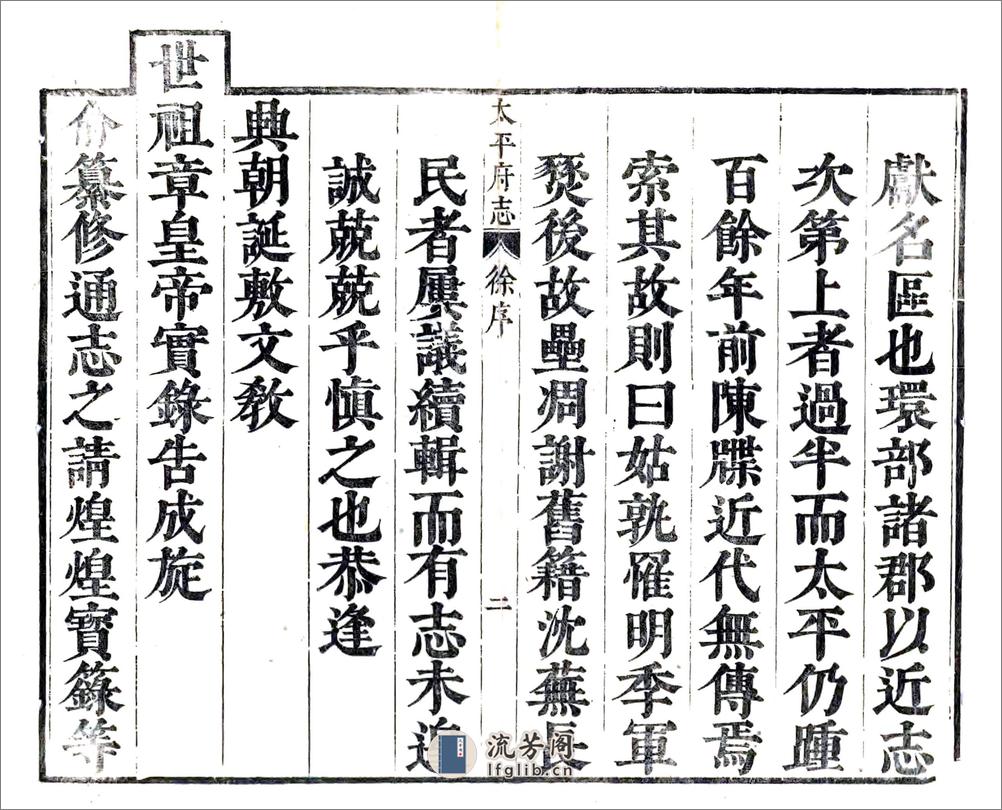 獻名區也環部諸郡以近志
次第上者過半而太平仍踵
百餘年前陳牒近代無傳焉
索其故則曰姑孰罹明季軍
燹後故壘凋謝舊籍沈蕪長
太平府志 徐序 二
民者屢議續輯而有志未逮
誠兢兢乎慎之也恭逢
典朝誕敷文敎
世祖章皇帝實錄告成旋
允纂修通志之請煌煌寶籙等
流芳阁
lfglib.cn